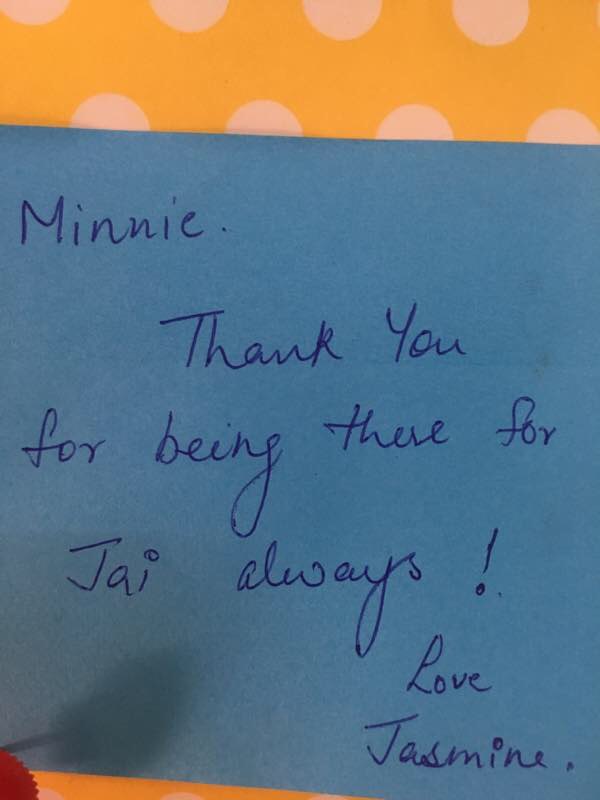 Minnie.
Thank You
for being there for
Jai always!
Love
Jasmine.